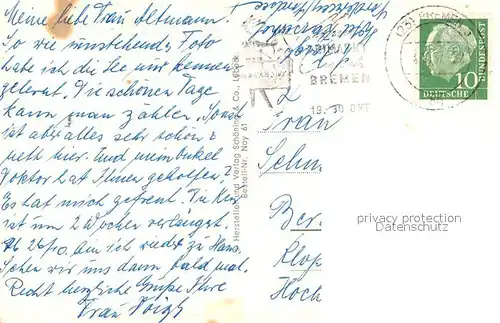 Meine liebe Frau Altmann!
So wie umstehendes Foto
habe ich die See nur kennen
gelernt. Die schönen Tage
kann man zählen. Sonst
ist aber alles sehr schön u.
nett hier. Und mein Onkel
Doktor hat Ihnen geholfen?
Es hat mich gefreut. Die Kur
ist um 2 Wochen verlängert.
Ab 26/10. bin ich wieder zu Haus.
Sehen wir uns dann bald mal.
Recht herzliche Grüße Ihre
Frau Voigt
Hersteller und Verlag Schöning & Co., Lübeck
Bestell-Nr. Noy 61
BREMEN
19.-30 OKT
(23) BREMEN
10
DEUTSCHE
BUNDESPOST
Frau
Schm
Ber
Klop
Hoch
privacy protection
Datenschutz